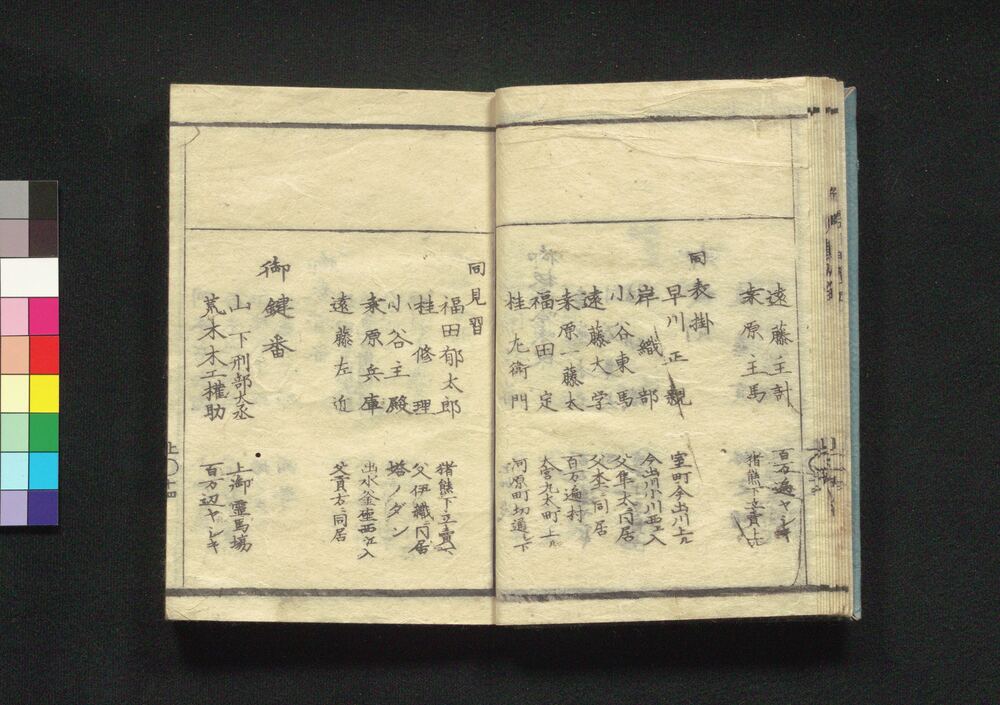 遠藤主計 百万遍ヤシキ
桒原主馬 猪熊下立賣上ル
同表掛
早川正親 室町今出川上ル
岸織部 今出川小川西ヘ入
小谷東馬 父隼太同居
遠藤大学 父主計同居
桒原一藤太 百万遍村
福田定 大宮丸太町上ル
桂九衛門 河原町切通シ下
同見習
福田郁太郎 猪熊下立賣
桂修理 父伊織同居
小谷主殿 塔ノダン
桒原兵庫 出水釜座西ヘ入
遠藤左近 父貢方同居
御鍵番
山下刑部大丞 上御霊馬場
荒木木工權助 百万辺ヤシキ
上 十四